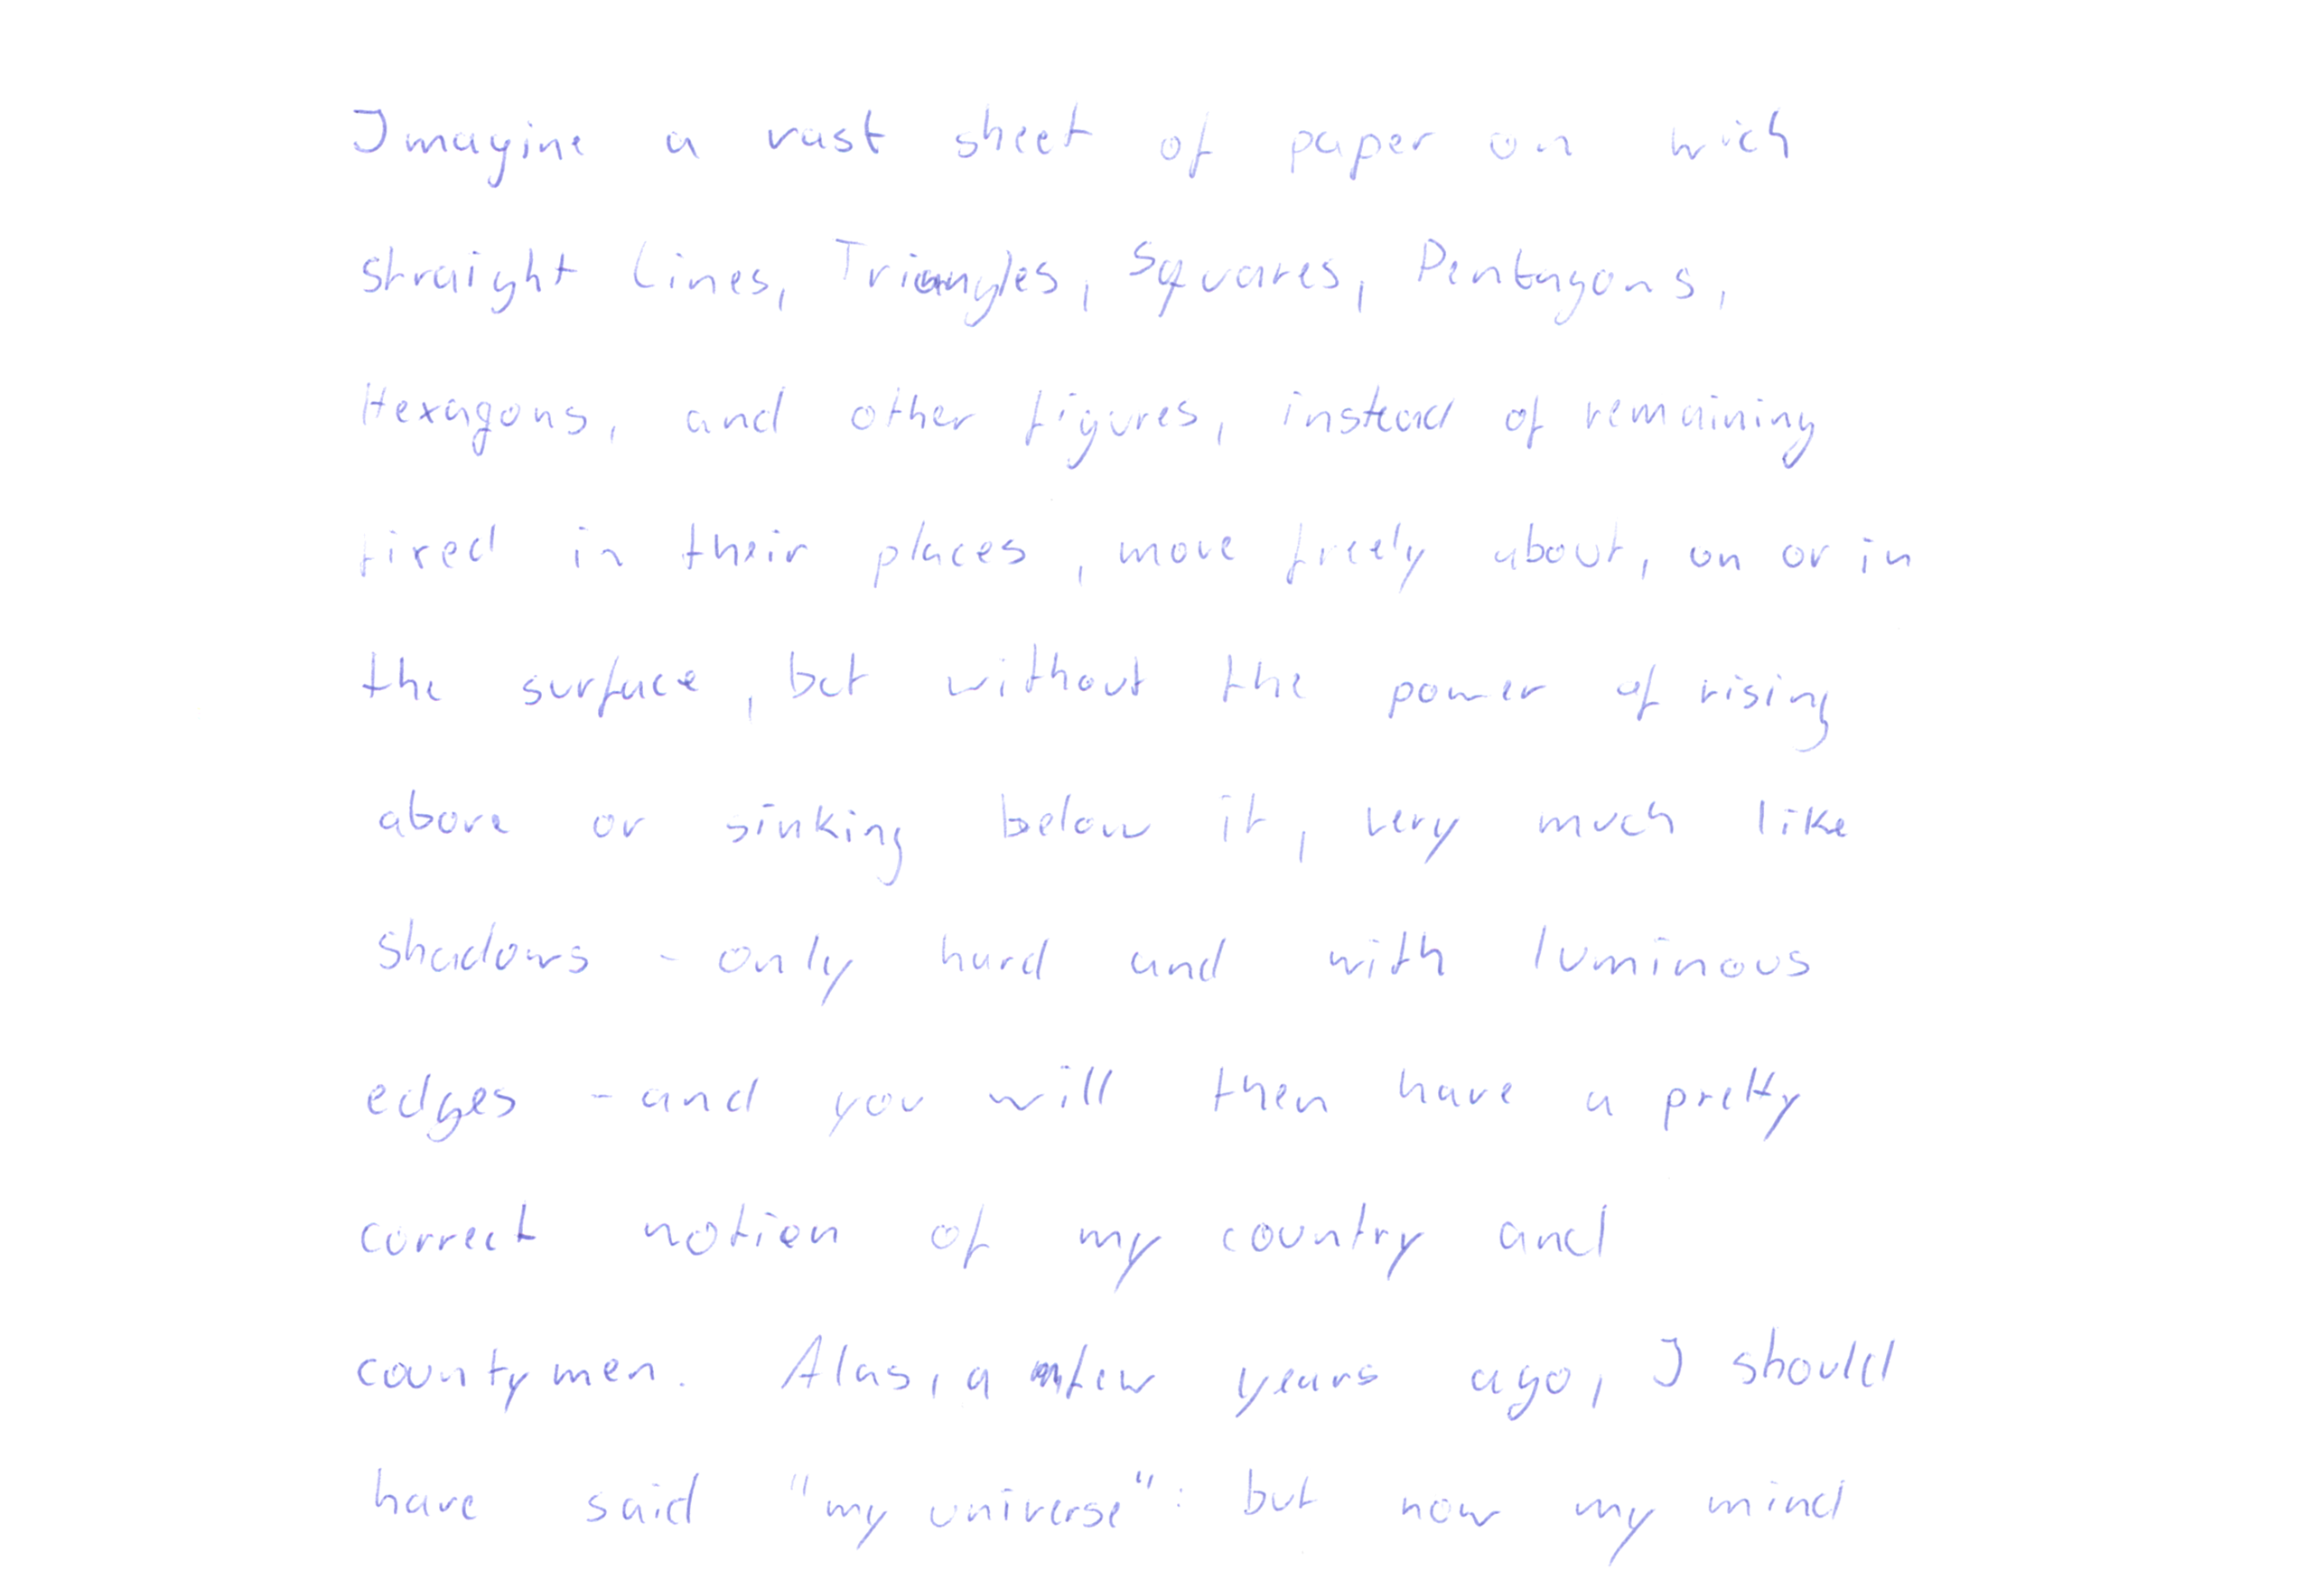 Imagine a vast sheet of paper on wich
straight Lines, Triangles, Squares, Pentagons,
Hexagons, and other figures, instead of remaining
fixed in their places, move freely about, on or in
the surface, but without the power of rising
above or sinking below it, very much like
shadows - only hard and with luminous
edges - and you will then have a pretty
correct notion of my country and
countymen. Alas, a few years ago, I should
have said "my universe": but now my mind